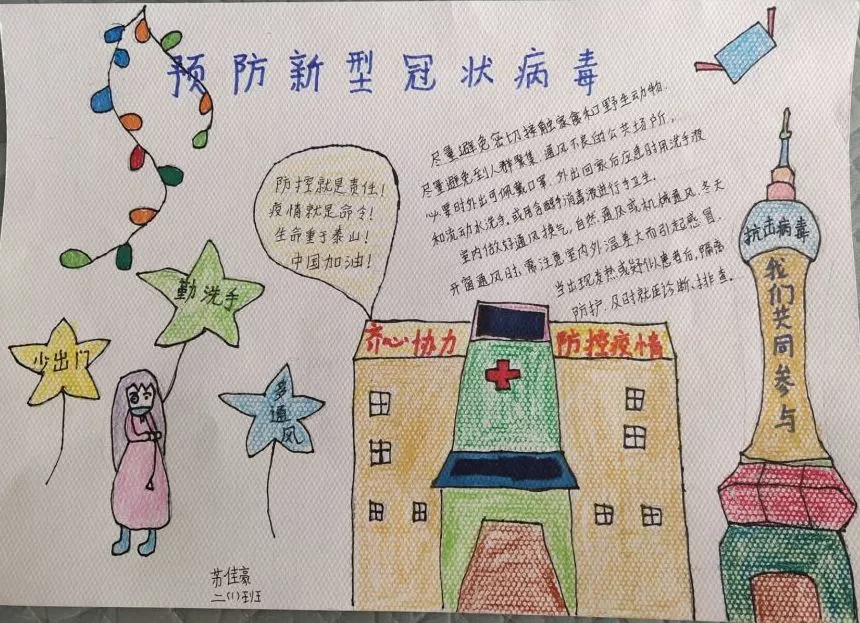 预防新型冠状病毒
尽量避免密切接触家禽和野生动物.
尽量避免到人群聚集、通风不良的公共场所,
必要时外出可佩戴口罩、外出回家后应及时用洗手液
和流动水洗手,或用含醇消毒液进行手卫生.
室内做好通风换气,自然通风或机械通风,冬天
开窗通风时,需注意室内外温差大而引起感冒.
当出现发热或疑似患者后,隔离
防护、及时就医诊断、排查.
防控就是责任!
疫情就是命令!
生命重于泰山!
中国加油!
勤洗手
少出门
多通风
齐心协力
防控疫情
抗击病毒
我们共同参与
苏佳豪
二(1)班